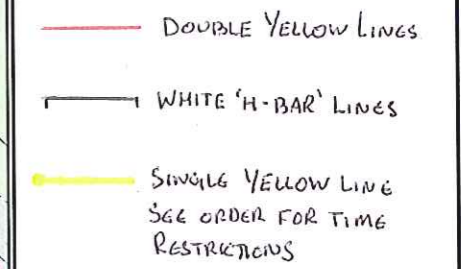 DOUBLE YELLOW LINES
WHITE 'H-BAR' LINES
SINGLE YELLOW LINE
SEE ORDER FOR TIME
RESTRICTIONS